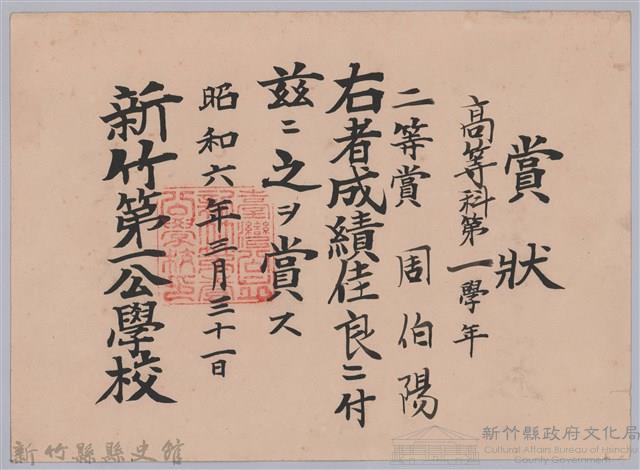 賞狀
高等科第一學年
二等賞 周伯陽
右者成績佳良ニ付
茲ニ之ヲ賞ス
昭和六年三月三十一日
新竹第一公學校
新竹縣縣史館
新竹縣政府文化局
Cultural Affairs Bureau of Hsinchu
County Government